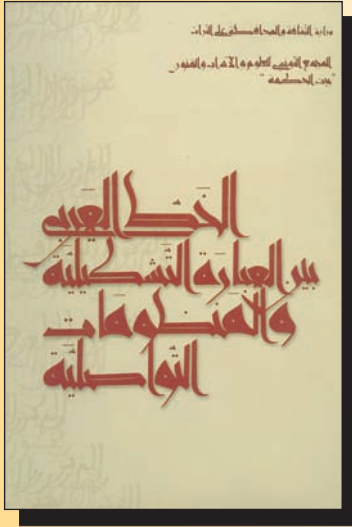 وزارة الثقافة والمحافظة على التراث
المجمع التونسي للعلوم والآداب والفنون
"بيت الحكمة"
الخط العربي
بين العبارة التشكيلية
والمنظومات
التواصلية